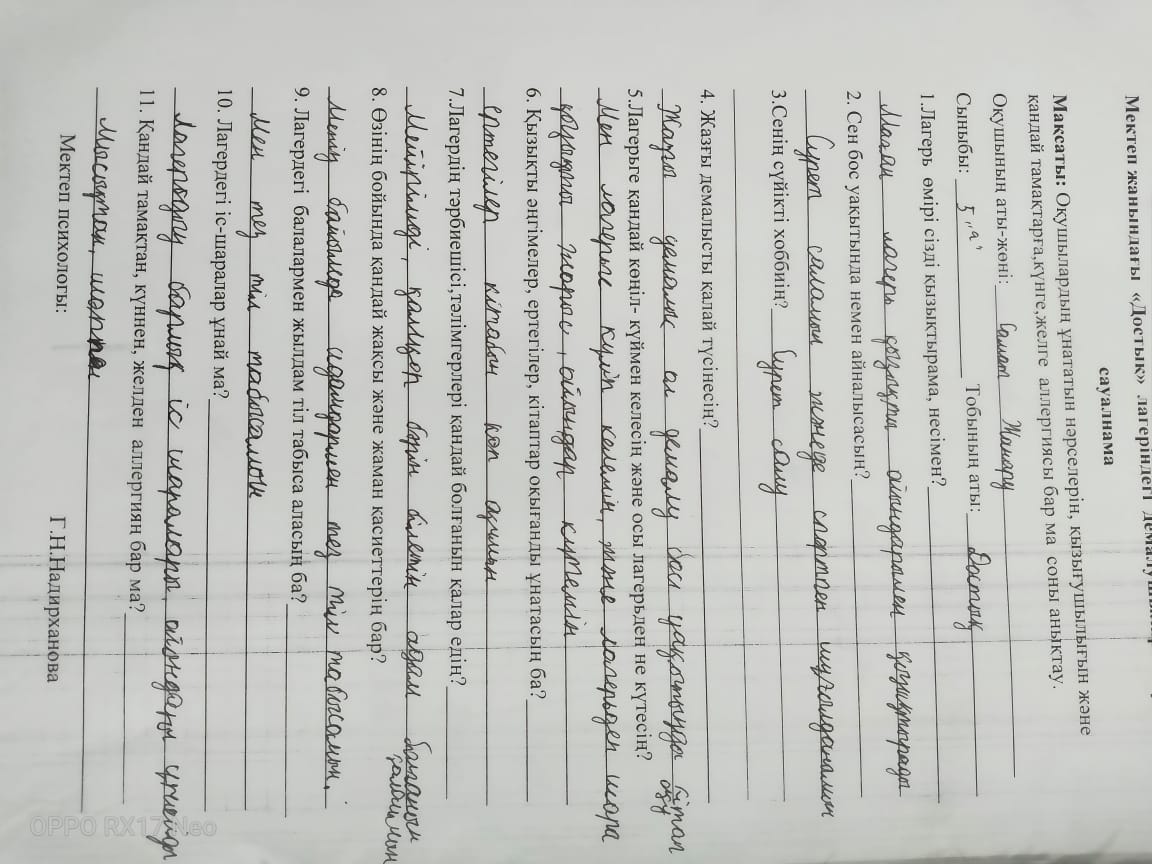 Мектеп жанындағы «Достык» лагеріндегі
сауалнама
Мақсаты: Оқушылардың ұнататын нәрселерін, кызығушылығын және
қандай тамақтарға,күнге,желге аллергиясы бар ма соны анықтау.
Оқушының аты-жөні: Жанару
Сыныбы: 5 "а" Тобының аты: Достық
1.Лагерь өмірі сізді кызықтырама, несімен?
Маған лагерь қызықты ойындарымен қызықтырады
2. Сен бос уақытында немен айналысасың?
Сурет саламын және спортпен шұғылданамын
3.Сенің сүйікті хоббиің? Сурет салу
4. Жазғы демалысты қалай түсінесің?
Жазғы демалыс ол демалу бос уақытыңды кітап оқу
5.Лагерьге қандай көңіл- күймен келесің және осы лагерьден не күтесің?
Мен лагерьге күліп келемін, және лагерьден шара
қызықты ойындар күтемін
6. Қызықты әңгімелер, ертегілер, кітаптар оқығанды ұнатасың ба?
ертегілер кітабын көп оқимын
7.Лагердің тәрбиешісі,тәлімгерлері қандай болғанын қалар едің?
Мейірімді, бәрін білетін адам болғанын қалаймын
8. Өзінің бойында қандай жақсы және жаман қасиеттерің бар?
Менің бойымда адамдармен тез тіл табысамын.
9. Лагердегі балалармен жылдам тіл табыса аласың ба?
Мен тез тіл табысамын
10. Лагердегі іс-шаралар ұнай ма?
Лагердің барлық іс шаралары, ойындары ұнайды
11. Қандай тамақтан, күннен, желден аллергияң бар ма?
Мысықтан, шаңнан
Мектеп психологы: Г.Н.Надирханова
OPPO RX17 Neo